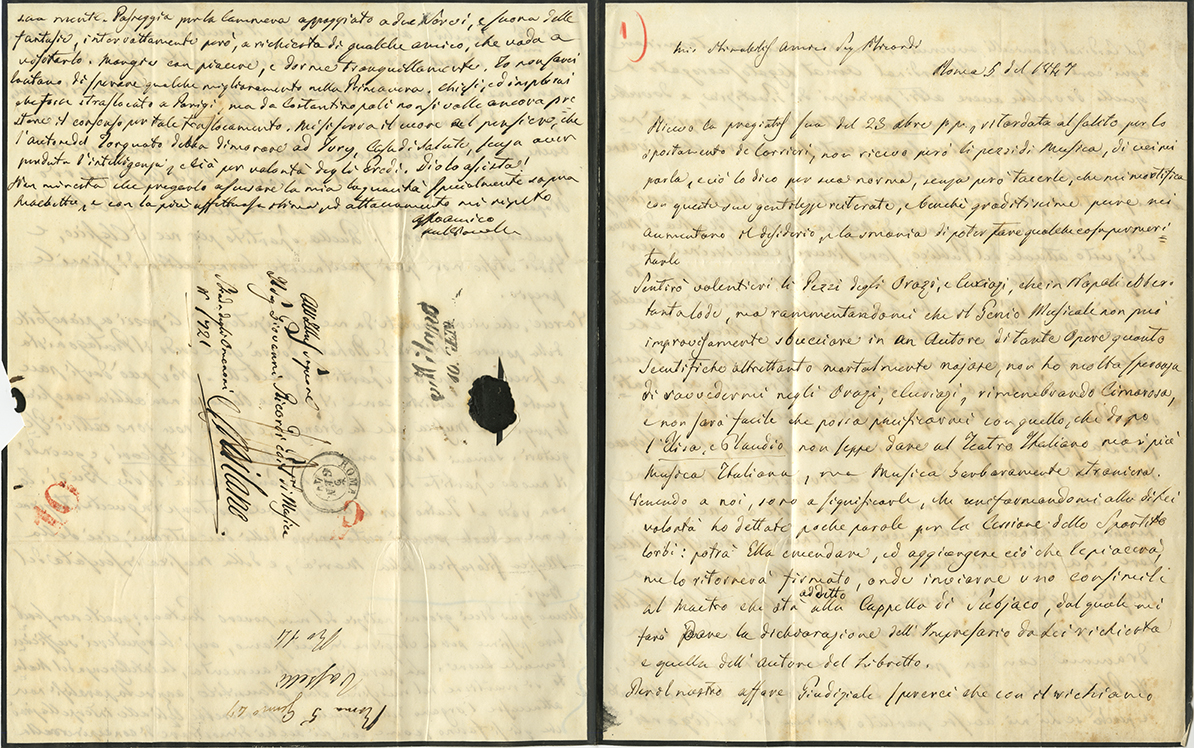 sua mente. Passeggia per la Cammera appoggiato a due Servi, e suona delle
fantasie, interottamente però, a richiesta di qualche amico, che vada a
visitarlo. Mangia con piacere, e dorme tranquillamente. Io non sarei
lontano di sperare qualche miglioramento nella Primavera. Chiesi, ed implorai
che fosse traslocato a Parigi, ma da Costantinopoli non si volle ancora pre
stare il consenso per tale traslocamento. Mi si serra il cuore nel pensiere, che
l'autore del Torquato debba dimorare ad Ivry, Casa di Salute, senza aver
perduta l'intelligenza, e ciò per volontà degli Eredi. Dio lo assista!
Non mi resta che pregarlo a scusare la mia seguacità specialmente sopra
Macbetto, e con la più affettuosa stima, ed attaccamento mi ripeto
All'Illmo Signore
Il Sig Giovanni Ricordi Editore di Musica
Strada degli Omenoni
N° 1721
Milano
ROMA
5
GEN
47
Roma 5 Genn 47
Vasselli
Ro 14
1)
Mio Stimabilis Amico Sig Ricordi
Roma 5 del 1847
Ricevo la pregiatis sua del 23 xbre p.p., ritardata al solito per lo
spostamento de Corrieri, non ricevo però li pezzi di Musica, di cui mi
parla, e ciò lo dico per sua norma, senza però tacerle, che mi mortifica
con queste sue gentilezze reiterate, e benchè graditissime pure mi
aumentano il desiderio, e la smania di poter fare qualche cosa per meri=
tarle
Sentirò volentieri li Pezzi degli Orazi, e Curiazi, che in Napoli ebber
tanta lode, ma rammentandomi che il Genio Musicale non può
improvisamente sbucciare in un Autore di tante Opere quanto
Scientifiche altrettanto mortalmente nojose, non ho molta speranza
di ravvedermi negli Orazi, e Curiazi, rimembrando Cimarosa,
e non sarà facile che possa pacificarmi con quello, che dopo
l'Elisa, e Claudio non seppe dare al Teatro Italiano mai più
Musica Italiana, ma Musica barbaramente straniera.
Venendo a noi, sono a significarle, che uniformandomi alla di Lei
volontà ho dettate poche parole per la Cessione dello Spartito
Corbi: potrà Ella emendare, ed aggiungere ciò che le piacerà
me lo ritornerà firmato, onde inviarne uno consimile
al Maestro che stà additto alla Cappella di Subjaco, dal quale mi
farò dare la dichiarazione dell'Impresario da Lei richiesta
e quella dell'autore del Libretto.
Per il nostro affare Giudiziale sperai che con il richiamo